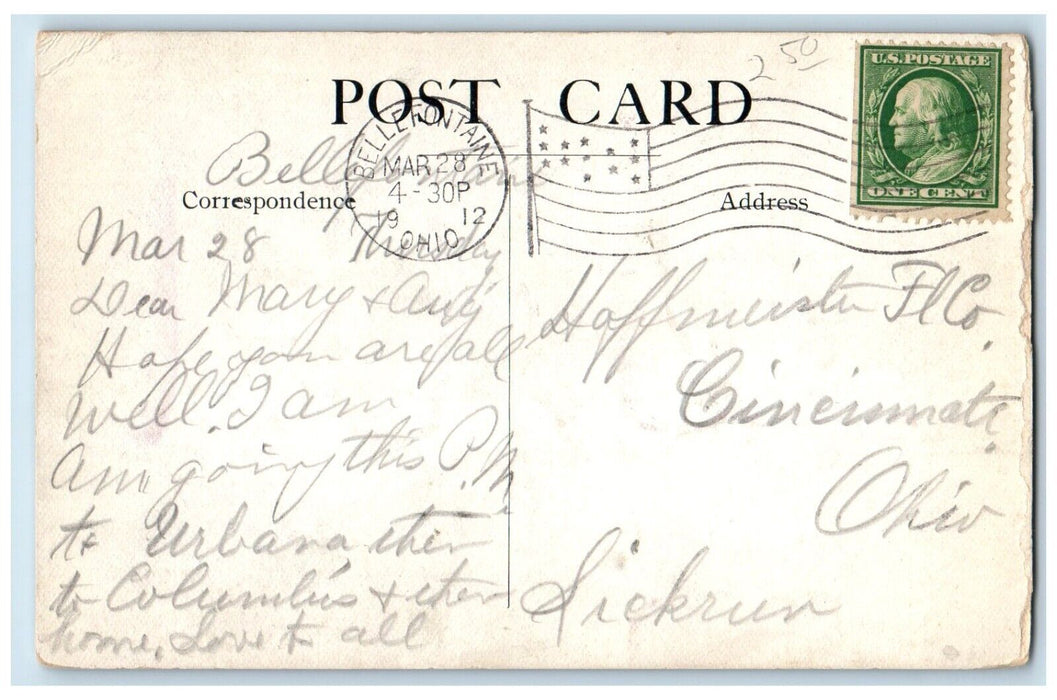 2 50
U.S. POSTAGE
ONE CENT
POST CARD
BELLEFONTAINE
MAR 28
4-30P
1912
OHIO
Correspondence
Address
Bellefontaine
Mar 28 Thursday
Dear Mary &
Hope you are all
well. I am
Am going this P.M.
to Urbana then
to Columbus & then
home, Love to all
Hoffmeister Fl Co.
Cincinnati
Ohio